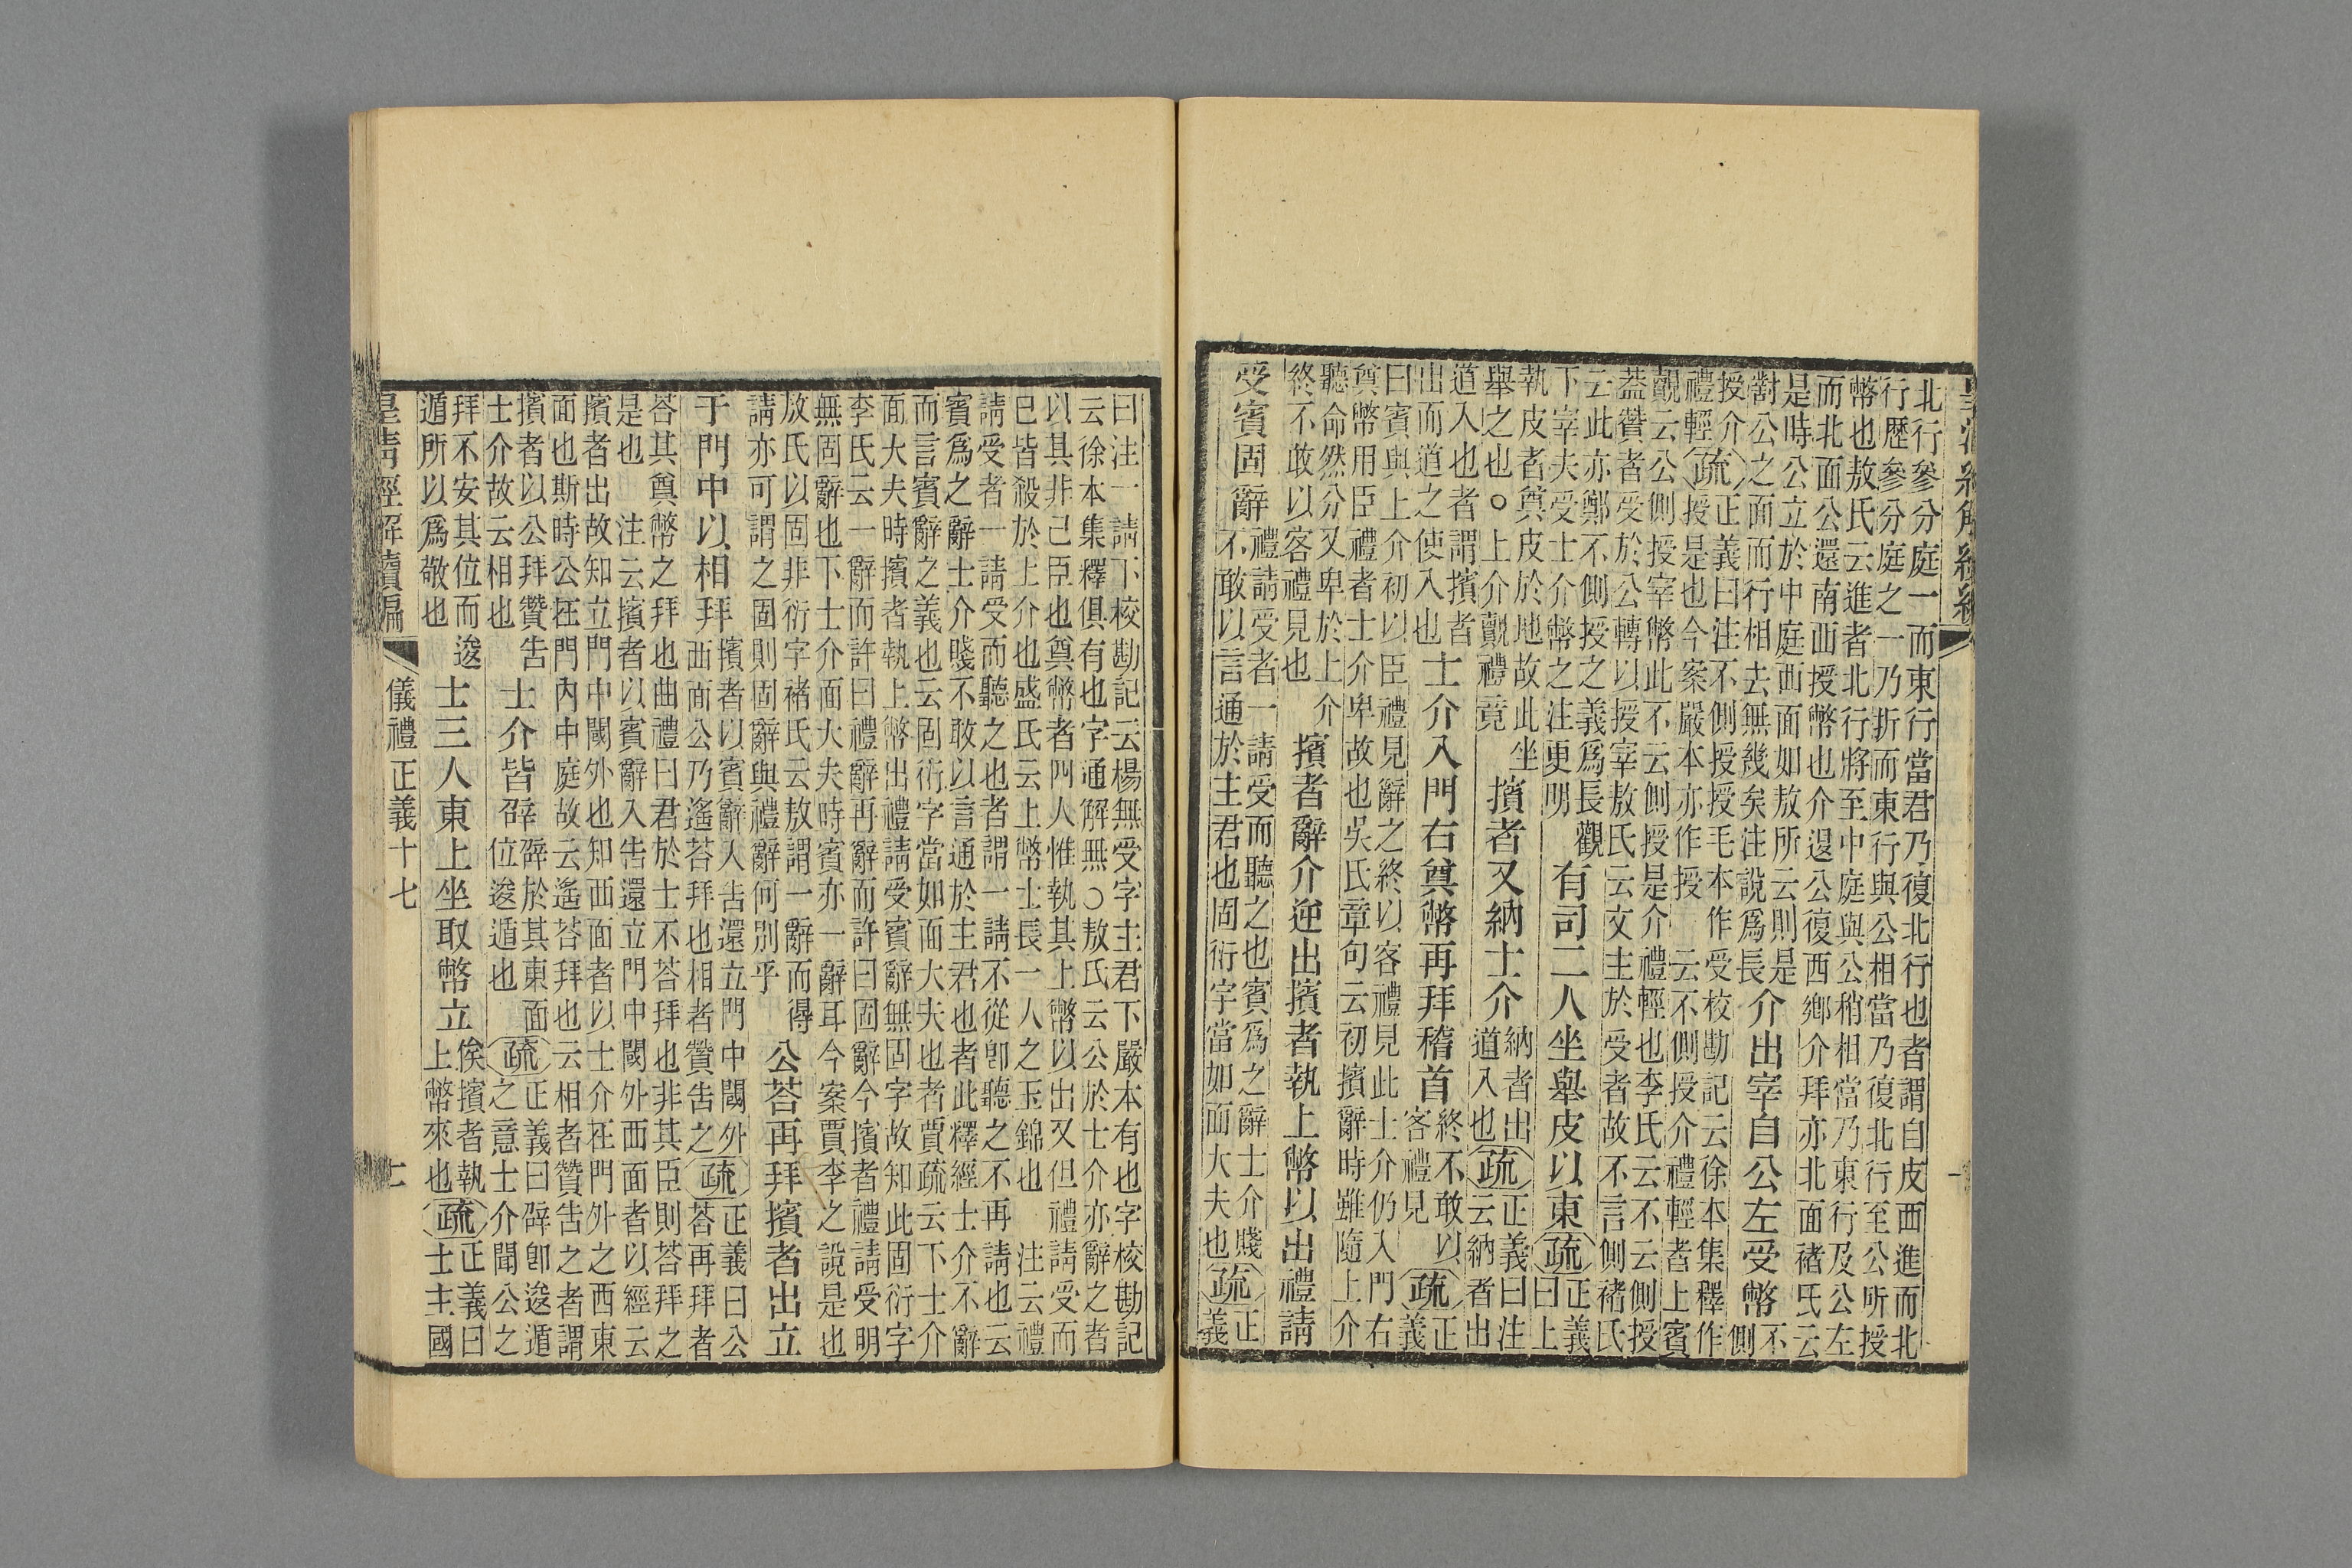 北行參分庭一而東行當君乃復北行也者謂自皮西進而北
行歷參分庭之一乃折而東行與公相當乃復北行至公所授
幣也敖氏云進者北行將至中庭與公稍相當乃東行及公左
而北面公還南面授幣也介還公復西鄉介拜亦北面褚氏云
是時公立於中庭西面如敖所云則是
對公之面而行相去無幾矣注說爲長
介出宰自公左受幣
不
側
授介
禮輕
疏
正義曰注不側授授毛本作受校勘記云徐本集釋作
授是也今案嚴本亦作授 云不側授介禮輕者上賓
覿云公側授宰幣此不云側授是介禮輕也李氏云不云側授
蓋贊者受於公轉以授宰敖氏云文主於受者故不言側褚氏
云此亦鄭不側授之義爲長觀
下宰夫受士介幣之注更明
有司二人坐舉皮以東
疏
正義
曰上
執皮者奠皮於地故此坐
舉之也○上介覿禮竟
擯者又納士介
納者出
道入也
疏
正義曰注
云納者出
道入也者謂擯者
出而道之使入也
士介入門右奠幣再拜稽首
終不敢以
客禮見
疏
正
義
曰賓與上介初以臣禮見辭之終以客禮見此士介仍入門右
奠幣用臣禮者士介卑故也吳氏章句云初擯辭時雖隨上介
聽命然分又卑於上介
終不敢以客禮見也
擯者辭介逆出擯者執上幣以出禮請
受賓固辭
禮請受者一請受而聽之也賓爲之辭士介賤
不敢以言通於主君也固衍字當如面大夫也
疏
正
義
曰注一請下校勘記云楊無受字主君下嚴本有也字校勘記
云徐本集釋俱有也字通解無○敖氏云公於士介亦辭之者
以其非己臣也奠幣者四人惟執其上幣以出又但禮請受而
已皆殺於上介也盛氏云上幣士長一人之玉錦也 注云禮
請受者一請受而聽之也者謂一請不從卽聽之不再請也云
賓爲之辭士介賤不敢以言通於主君也者此釋經士介不辭
而言賓辭之義也云固衍字當如面大夫也者賈疏云下士介
面大夫時擯者執上幣出禮請受賓辭無固字故知此固衍字
李氏云一辭而許曰禮辭再辭而許曰固辭今擯者禮請受明
無固辭也下士介面大夫時賓亦一辭耳今案賈李之說是也
敖氏以固非衍字褚氏云敖謂一辭而得
請亦可謂之固則固辭與禮辭何別乎
公荅再拜擯者出立
于門中以相拜
擯者以賓辭入告還立門中閾外
西面公乃遙荅拜也相者贊告之
疏
正義曰公
荅再拜者
荅其奠幣之拜也曲禮曰君於士不荅拜也非其臣則荅拜之
是也 注云擯者以賓辭入告還立門中閾外西面者以經云
擯者出故知立門中閾外也知西面者以士介在門外之西東
面也斯時公在門內中庭故云遙荅拜也云相者贊告之者謂
擯者以公拜贊告
士介故云相也
士介皆辟
辟於其東面
位逡遁也
疏
正義曰辟卽逡遁
之意士介聞公之
拜不安其位而逡
遁所以爲敬也
士三人東上坐取幣立
俟擯者執
上幣來也
疏
正義曰
士主國
皇清經解續編
儀禮正義十七